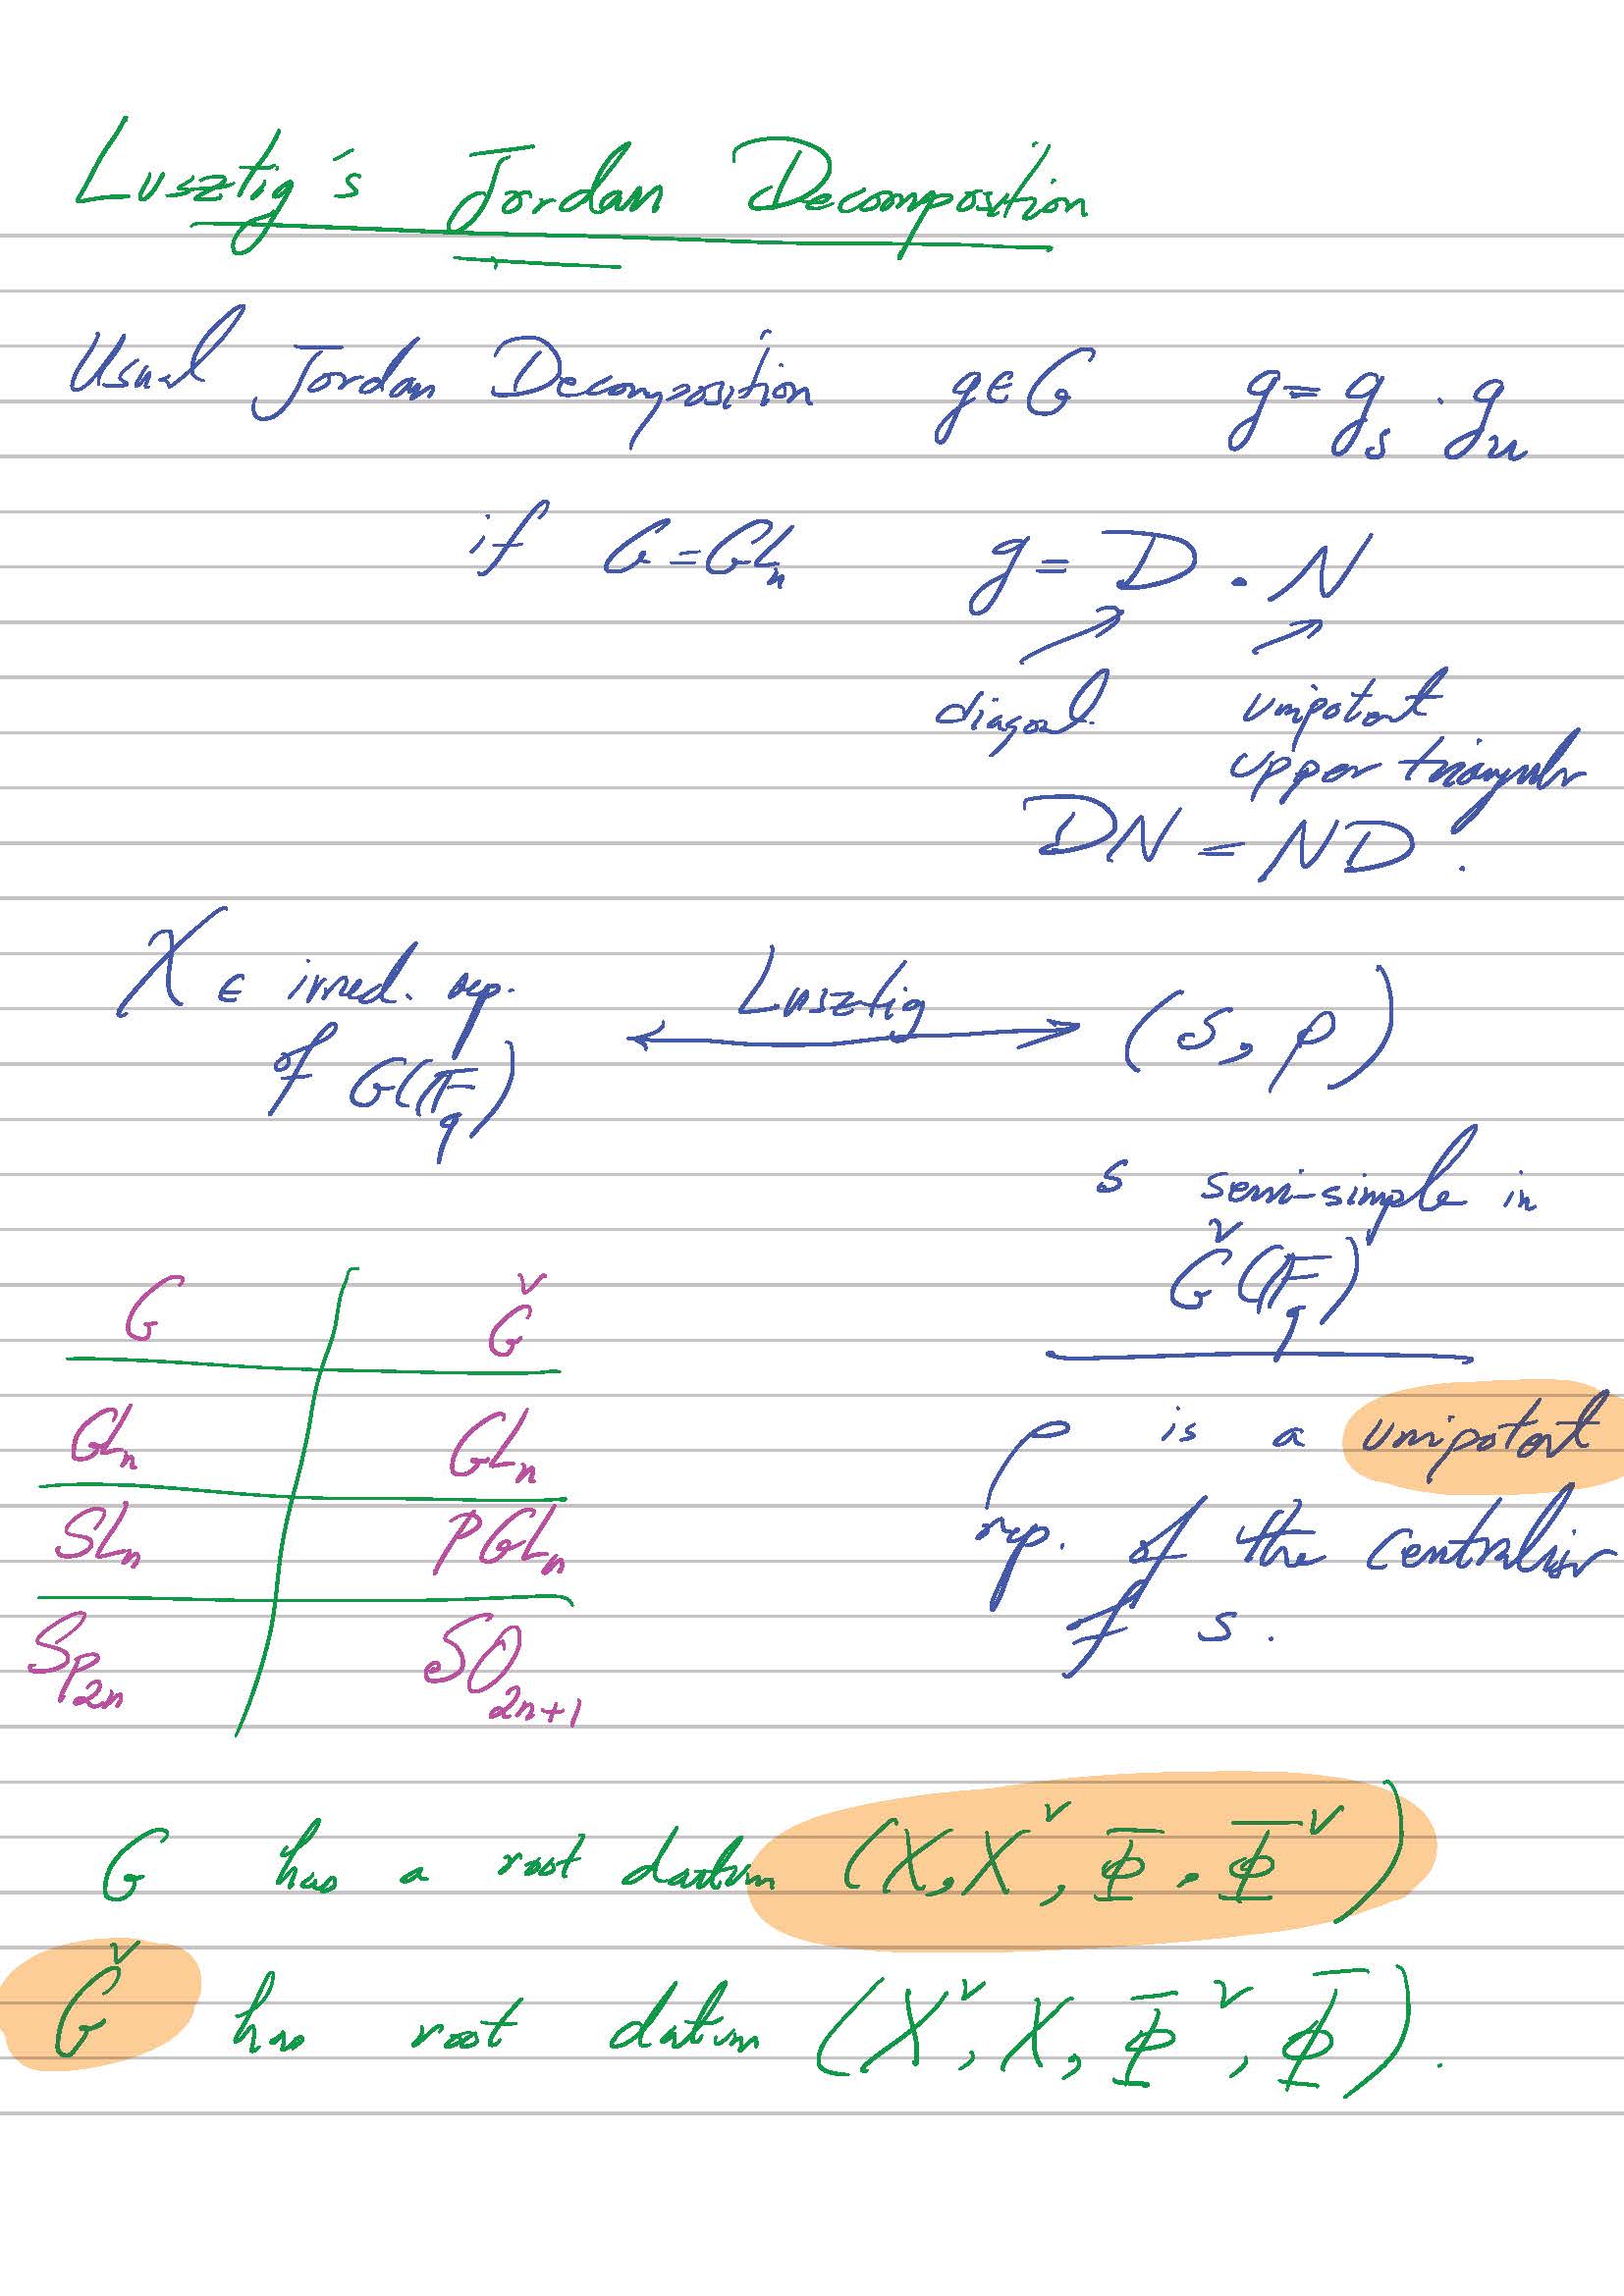 Lusztig's Jordan Decomposition
Usual Jordan Decomposition g∈G g = g_s · g_u
if G = GL_n g = D · N
diagonal unipotent
upper triangular
DN = ND.
χ ∈ irred. rep. of G(𝔽_q) ⟷ Lusztig (s, ρ)
s semi-simple in
Ǧ(𝔽_q)
ρ is a unipotent
rep. of the centraliser
of s.
G Ǧ
GL_n GL_n
SL_n PGL_n
Sp_2n SO_2n+1
G has a root datum (X, X^∨, Φ, Φ^∨)
Ǧ has root datum (X^∨, X, Φ^∨, Φ).